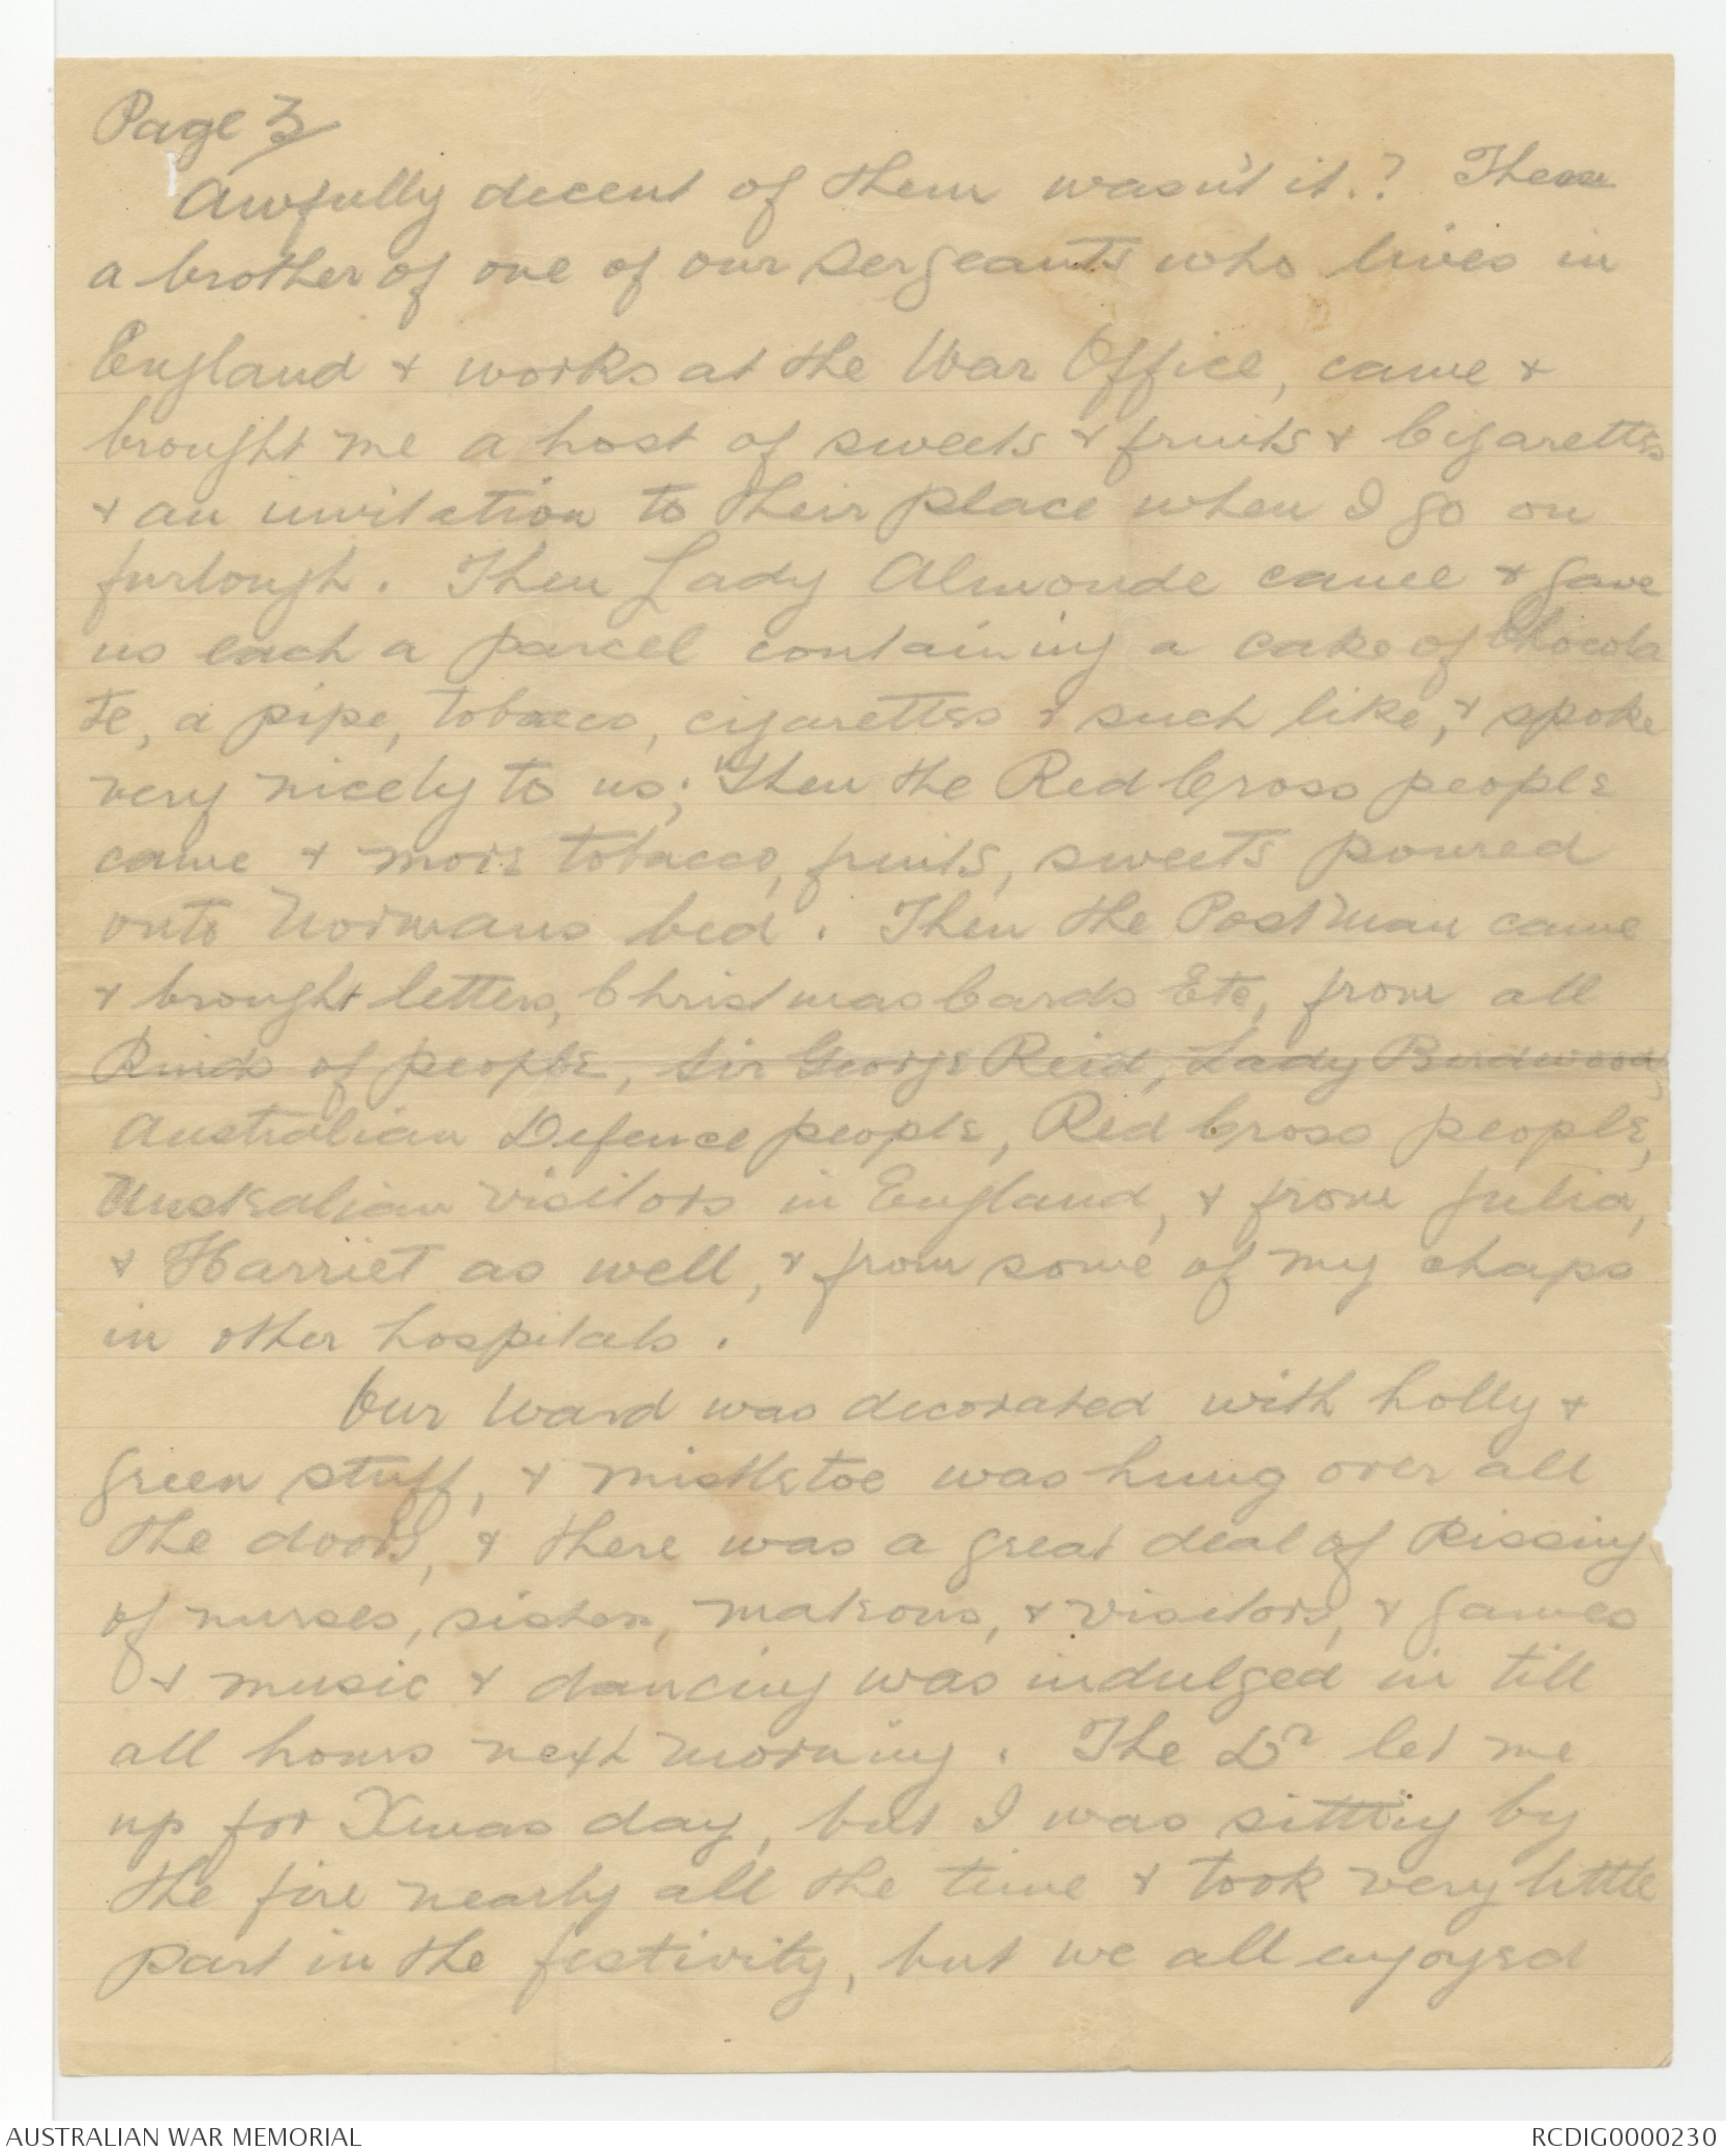 Page 3
Awfully decent of them wasn't it.? Then
a brother of one of our Sergeants who lives in
England & works at the War Office, came &
brought me a host of sweets & fruits & Cigarettes
& an invitation to their place when I go on
furlough. Then Lady Almonde came & gave
us each a parcel containing a cake of Chocola
te, a pipe, tobacco, cigarettes & such like, & spoke
very nicely to us; "Then the Red Cross people
came & more tobacco, fruits, sweets poured
onto Normans bed. Then the Postman came
& brought letters, Christmas Cards Etc, from all
Kinds of people, Sir George Reid, Lady Birdwood,
Australian Defence people, Red Cross people,
Australian visitors in England, & from Julia,
& Harriet as well, & from some of my chaps
in other hospitals.
Our Ward was decorated with holly &
green stuff, & mistletoe was hung over all
the doors, & there was a great deal of Kissing
of nurses, sisters, matrons, & visitors, & games
& music & dancing was indulged in till
all hours next morning. The Dr let me
up for Xmas day, but I was sitting by
the fire nearly all the time & took very little
part in the festivity, but we all enjoyed
AUSTRALIAN WAR MEMORIAL
RCDIG0000230